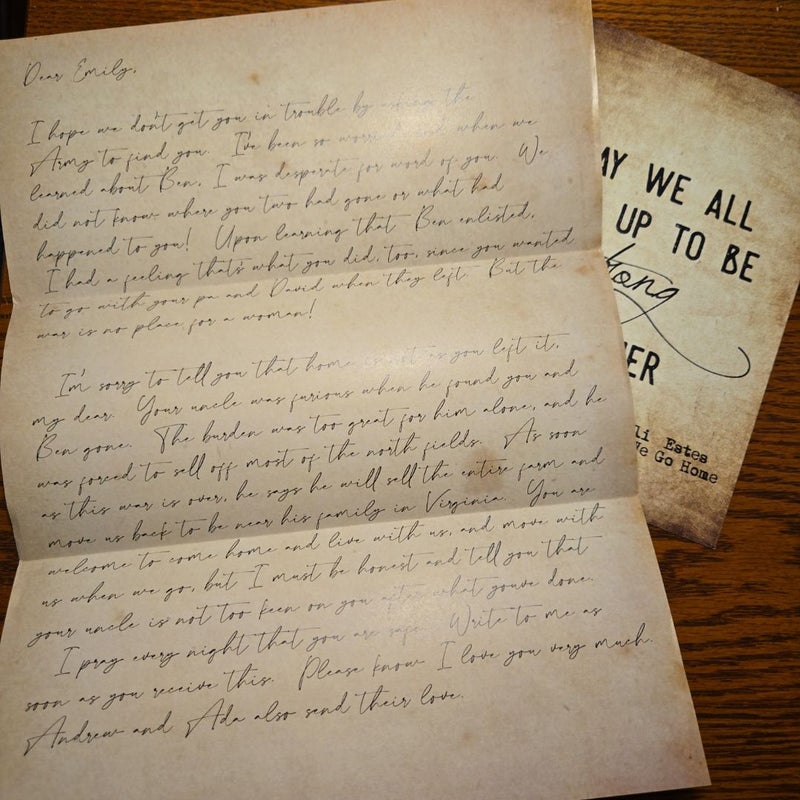 Dear Emily,
I hope we don't get you in trouble by asking the
Army to find you. I've been so worried, and when we
learned about Ben, I was desperate for word of you. We
did not know where you two had gone or what had
happened to you! Upon learning that Ben enlisted,
I had a feeling that's what you did, too, since you wanted
to go with your pa and David when they left. But the
war is no place for a woman!
I'm sorry to tell you that home is not as you left it,
my dear. Your uncle was furious when he found you and
Ben gone. The burden was too great for him alone, and he
was forced to sell off most of the north fields. As soon
as this war is over, he says he will sell the entire farm and
move us back to be near his family in Virginia. You are
welcome to come home and live with us, and move with
us when we go, but I must be honest and tell you that
your uncle is not too keen on you after what youve done.
I pray every night that you are safe. Write to me as
soon as you receive this. Please know I love you very much.
Andrew and Ada also send their love.
WE ALL
UP TO BE
Estes
We Go Home